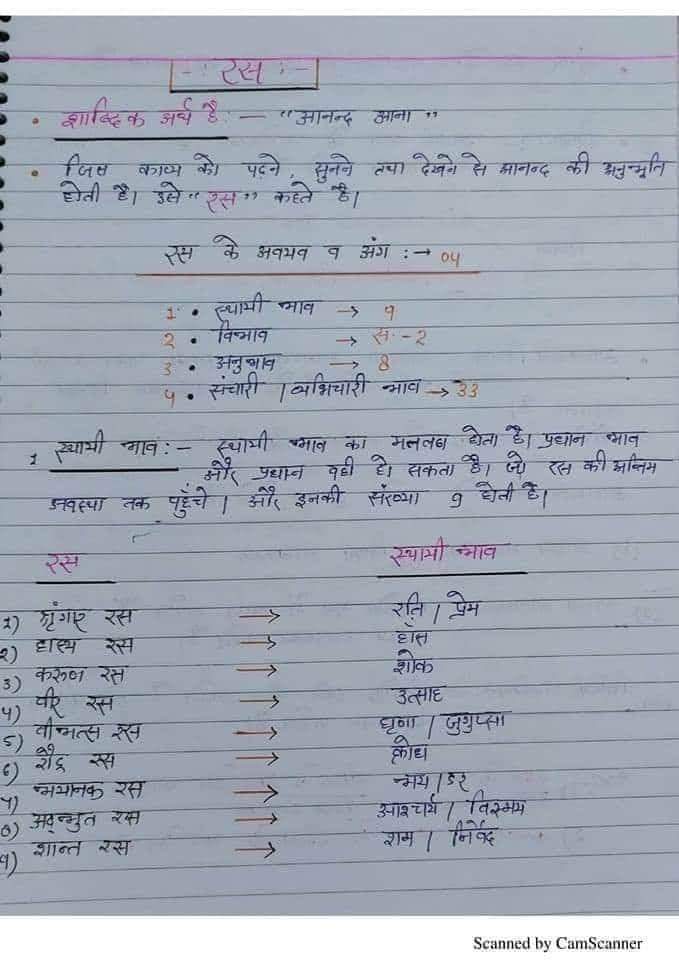 -: रस :-
• शाब्दिक अर्थ है :- "आनन्द आना"
• जिस काव्य को पढ़ने, सुनने तथा देखने से आनन्द की अनुभूति
होती है। उसे "रस" कहते है।
रस के अवयव व अंग :→ 04
1. • स्थायी भाव → 9
2 • विभाव → स. - 2
3 • अनुभाव → 8
4 • संचारी / व्यभिचारी भाव → 33
1 स्थायी भाव :- स्थायी भाव का मतलब होता है। प्रधान भाव
और प्रधान वही हो सकता है। जो रस की अन्तिम
अवस्था तक पहुँचे। और इनकी संख्या 9 होती है।
रस स्थायी भाव
1) श्रृंगार रस → रति / प्रेम
2) हास्य रस → हाँस
3) करुण रस → शोक
4) वीर रस → उत्साह
5) वीभत्स रस → घृणा / जुगुप्सा
6) रौद्र रस → क्रोध
7) भयानक रस → भय / डर
8) अद्भुत रस → आश्चर्य / विस्मय
9) शान्त रस → शम / निर्वेद
Scanned by CamScanner